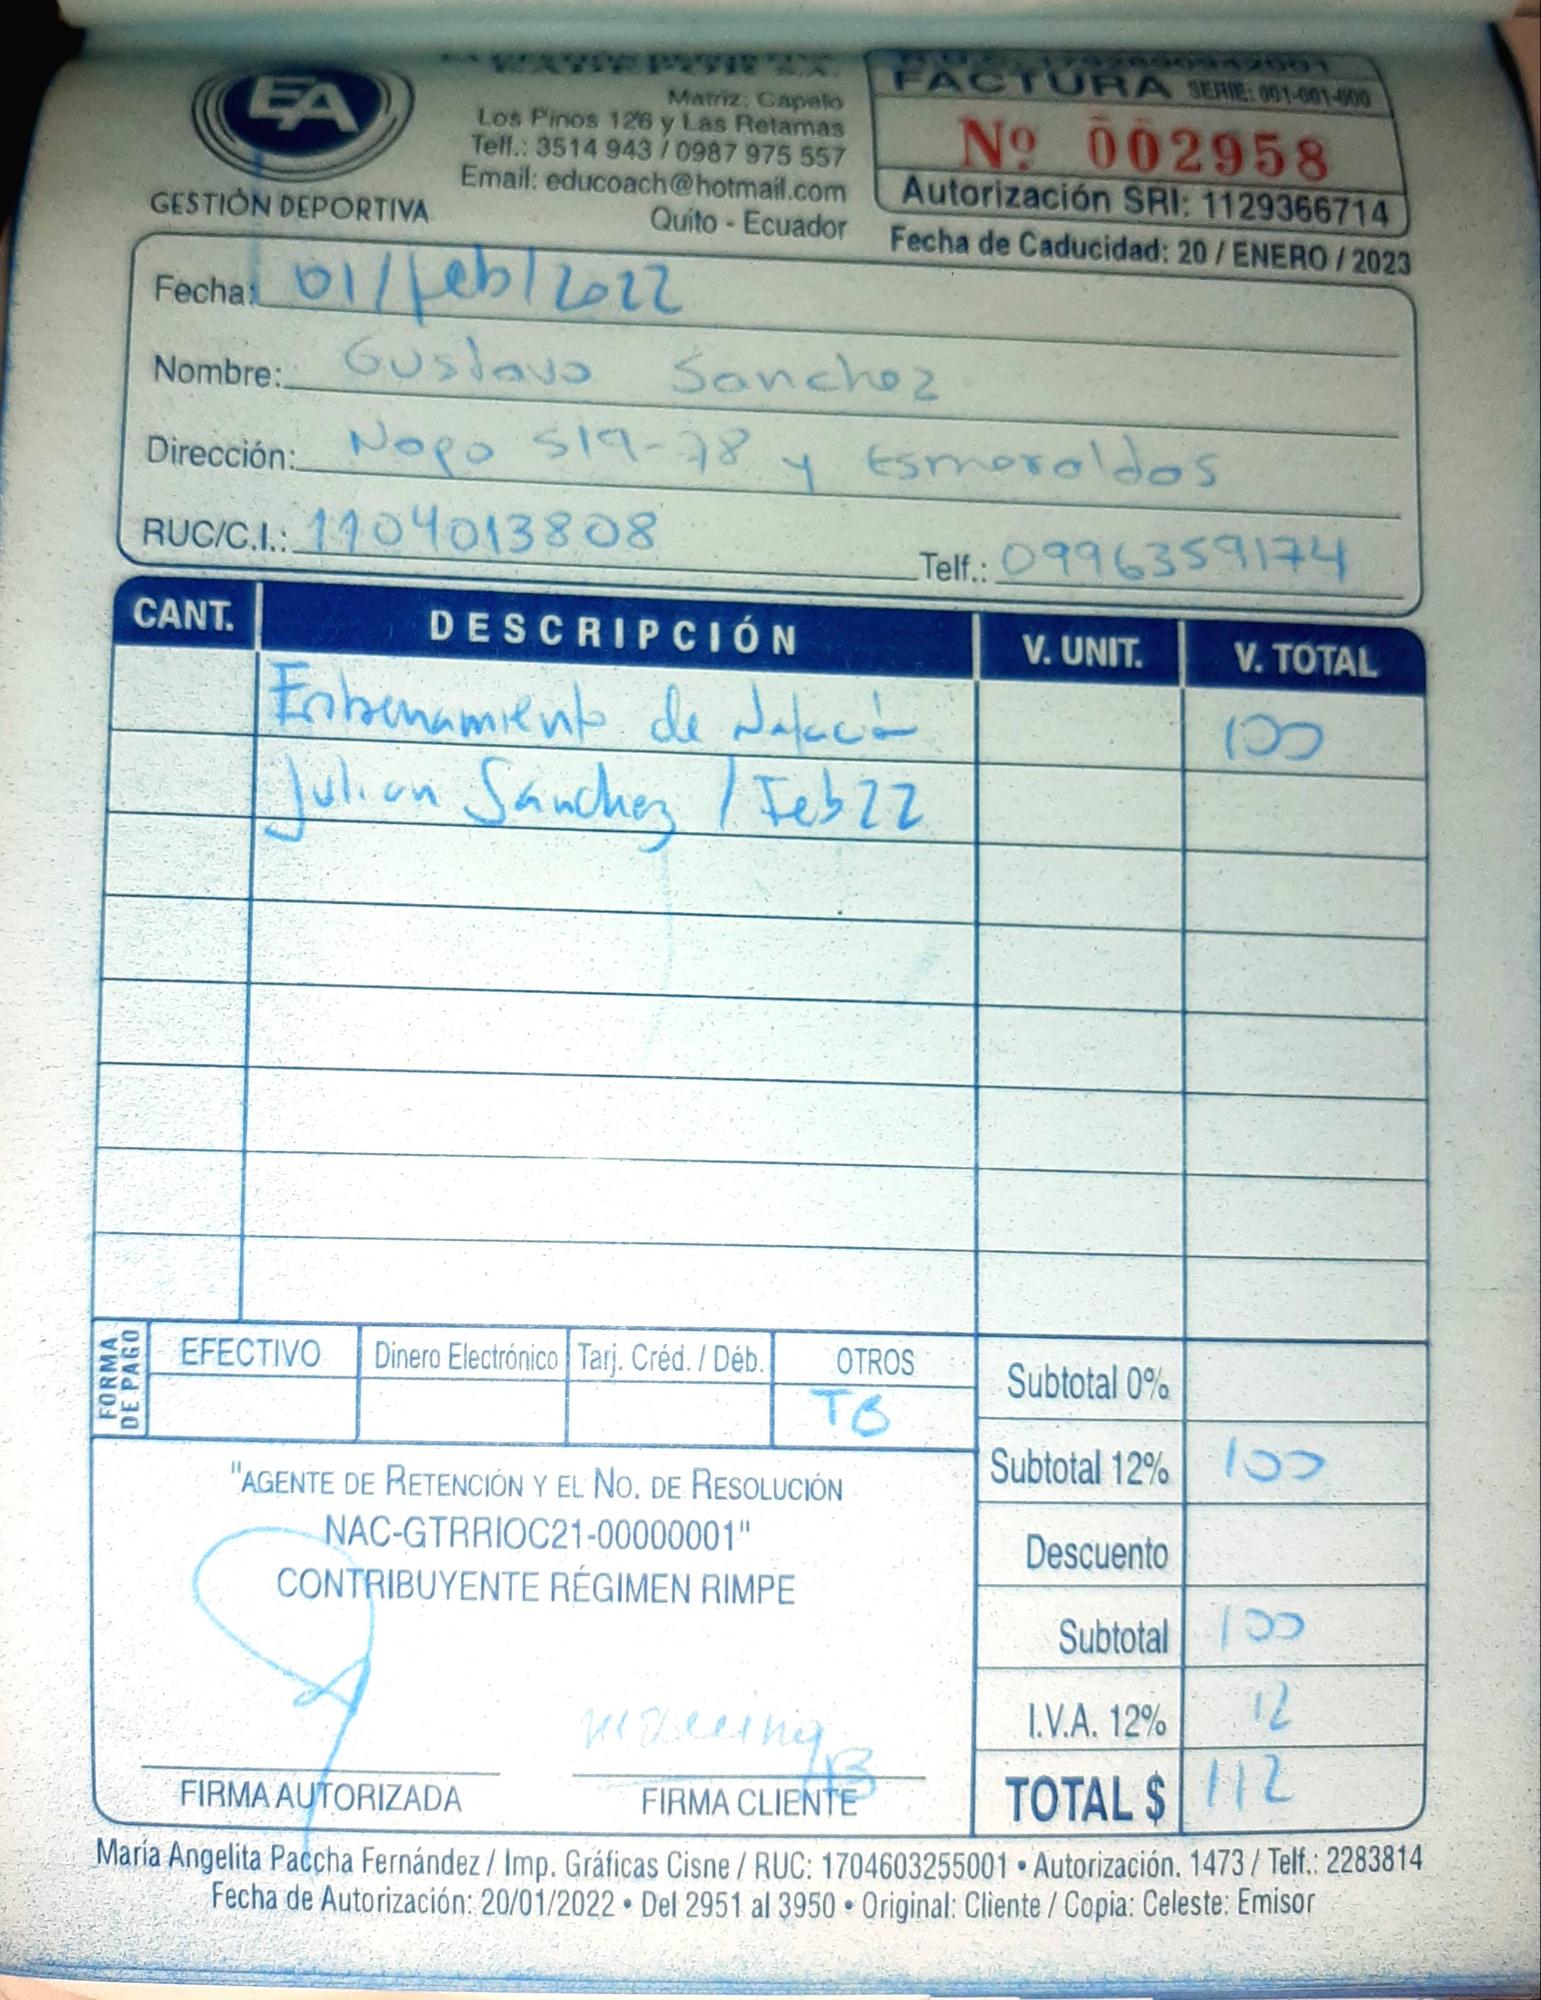 EA
GESTIÓN DEPORTIVA
Matriz: Capelo
Los Pinos 126 y Las Retamas
Telf.: 3514 943 / 0987 975 557
Email: educoach@hotmail.com
Quito - Ecuador
FACTURA SERIE: 001-001-000
Nº 002958
Autorización SRI: 1129366714
Fecha de Caducidad: 20 / ENERO / 2023
Fecha: 01/feb/2022
Nombre: Gustavo Sanchez
Dirección: Napo S19-78 y Esmeraldas
RUC/C.I.: 1104013808 Telf.: 0996359174
CANT. DESCRIPCIÓN V. UNIT. V. TOTAL
Entrenamiento de Natación 100
Julian Sánchez / Feb 22
FORMA DE PAGO
EFECTIVO Dinero Electrónico Tarj. Créd. / Déb. OTROS
TB
Subtotal 0%
Subtotal 12% 100
Descuento
Subtotal 100
I.V.A. 12% 12
TOTAL $ 112
"AGENTE DE RETENCIÓN Y EL NO. DE RESOLUCIÓN
NAC-GTRRIOC21-00000001"
CONTRIBUYENTE RÉGIMEN RIMPE
FIRMA AUTORIZADA FIRMA CLIENTE
María Angelita Paccha Fernández / Imp. Gráficas Cisne / RUC: 1704603255001 • Autorización. 1473 / Telf.: 2283814
Fecha de Autorización: 20/01/2022 • Del 2951 al 3950 • Original: Cliente / Copia: Celeste: Emisor